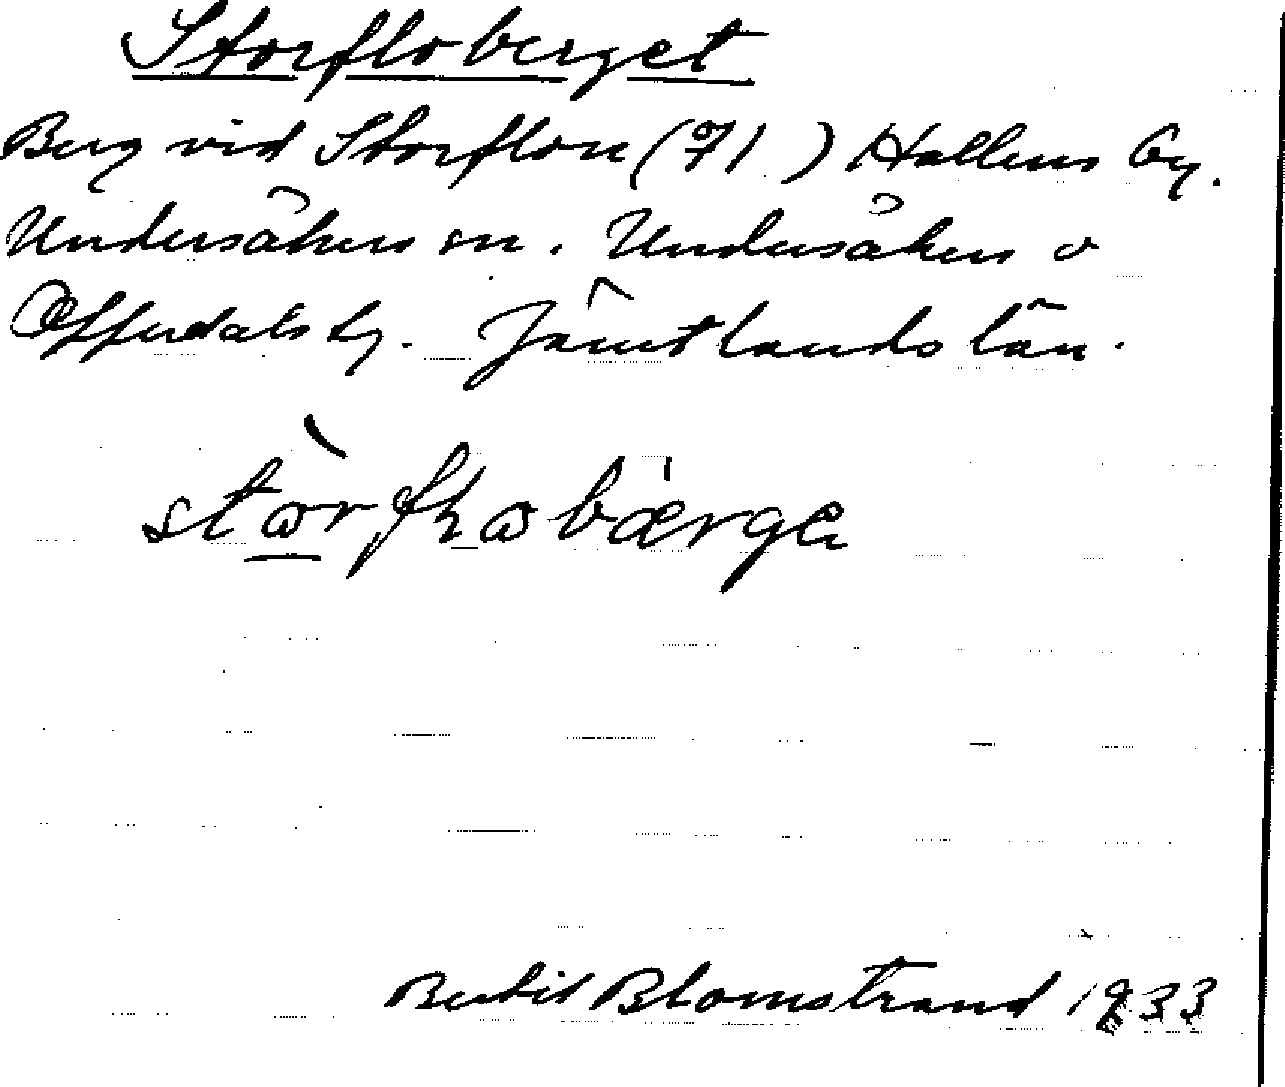 Storfloberget
Berg vid Storflon (71) Hallens by.
Undersåkers sn. Undersåkers o
Offerdals tg. Jämtlands län.
stɷ̀rfɫɷbærge
Bertil Blomstrand 1933